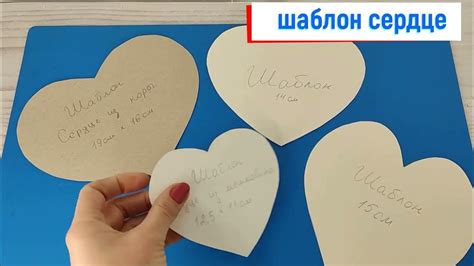 шаблон сердце
Шаблон
Сердце из коры
19см х 16см
Шаблон
14см
Шаблон
12,5 х 11см
Шаблон
15см